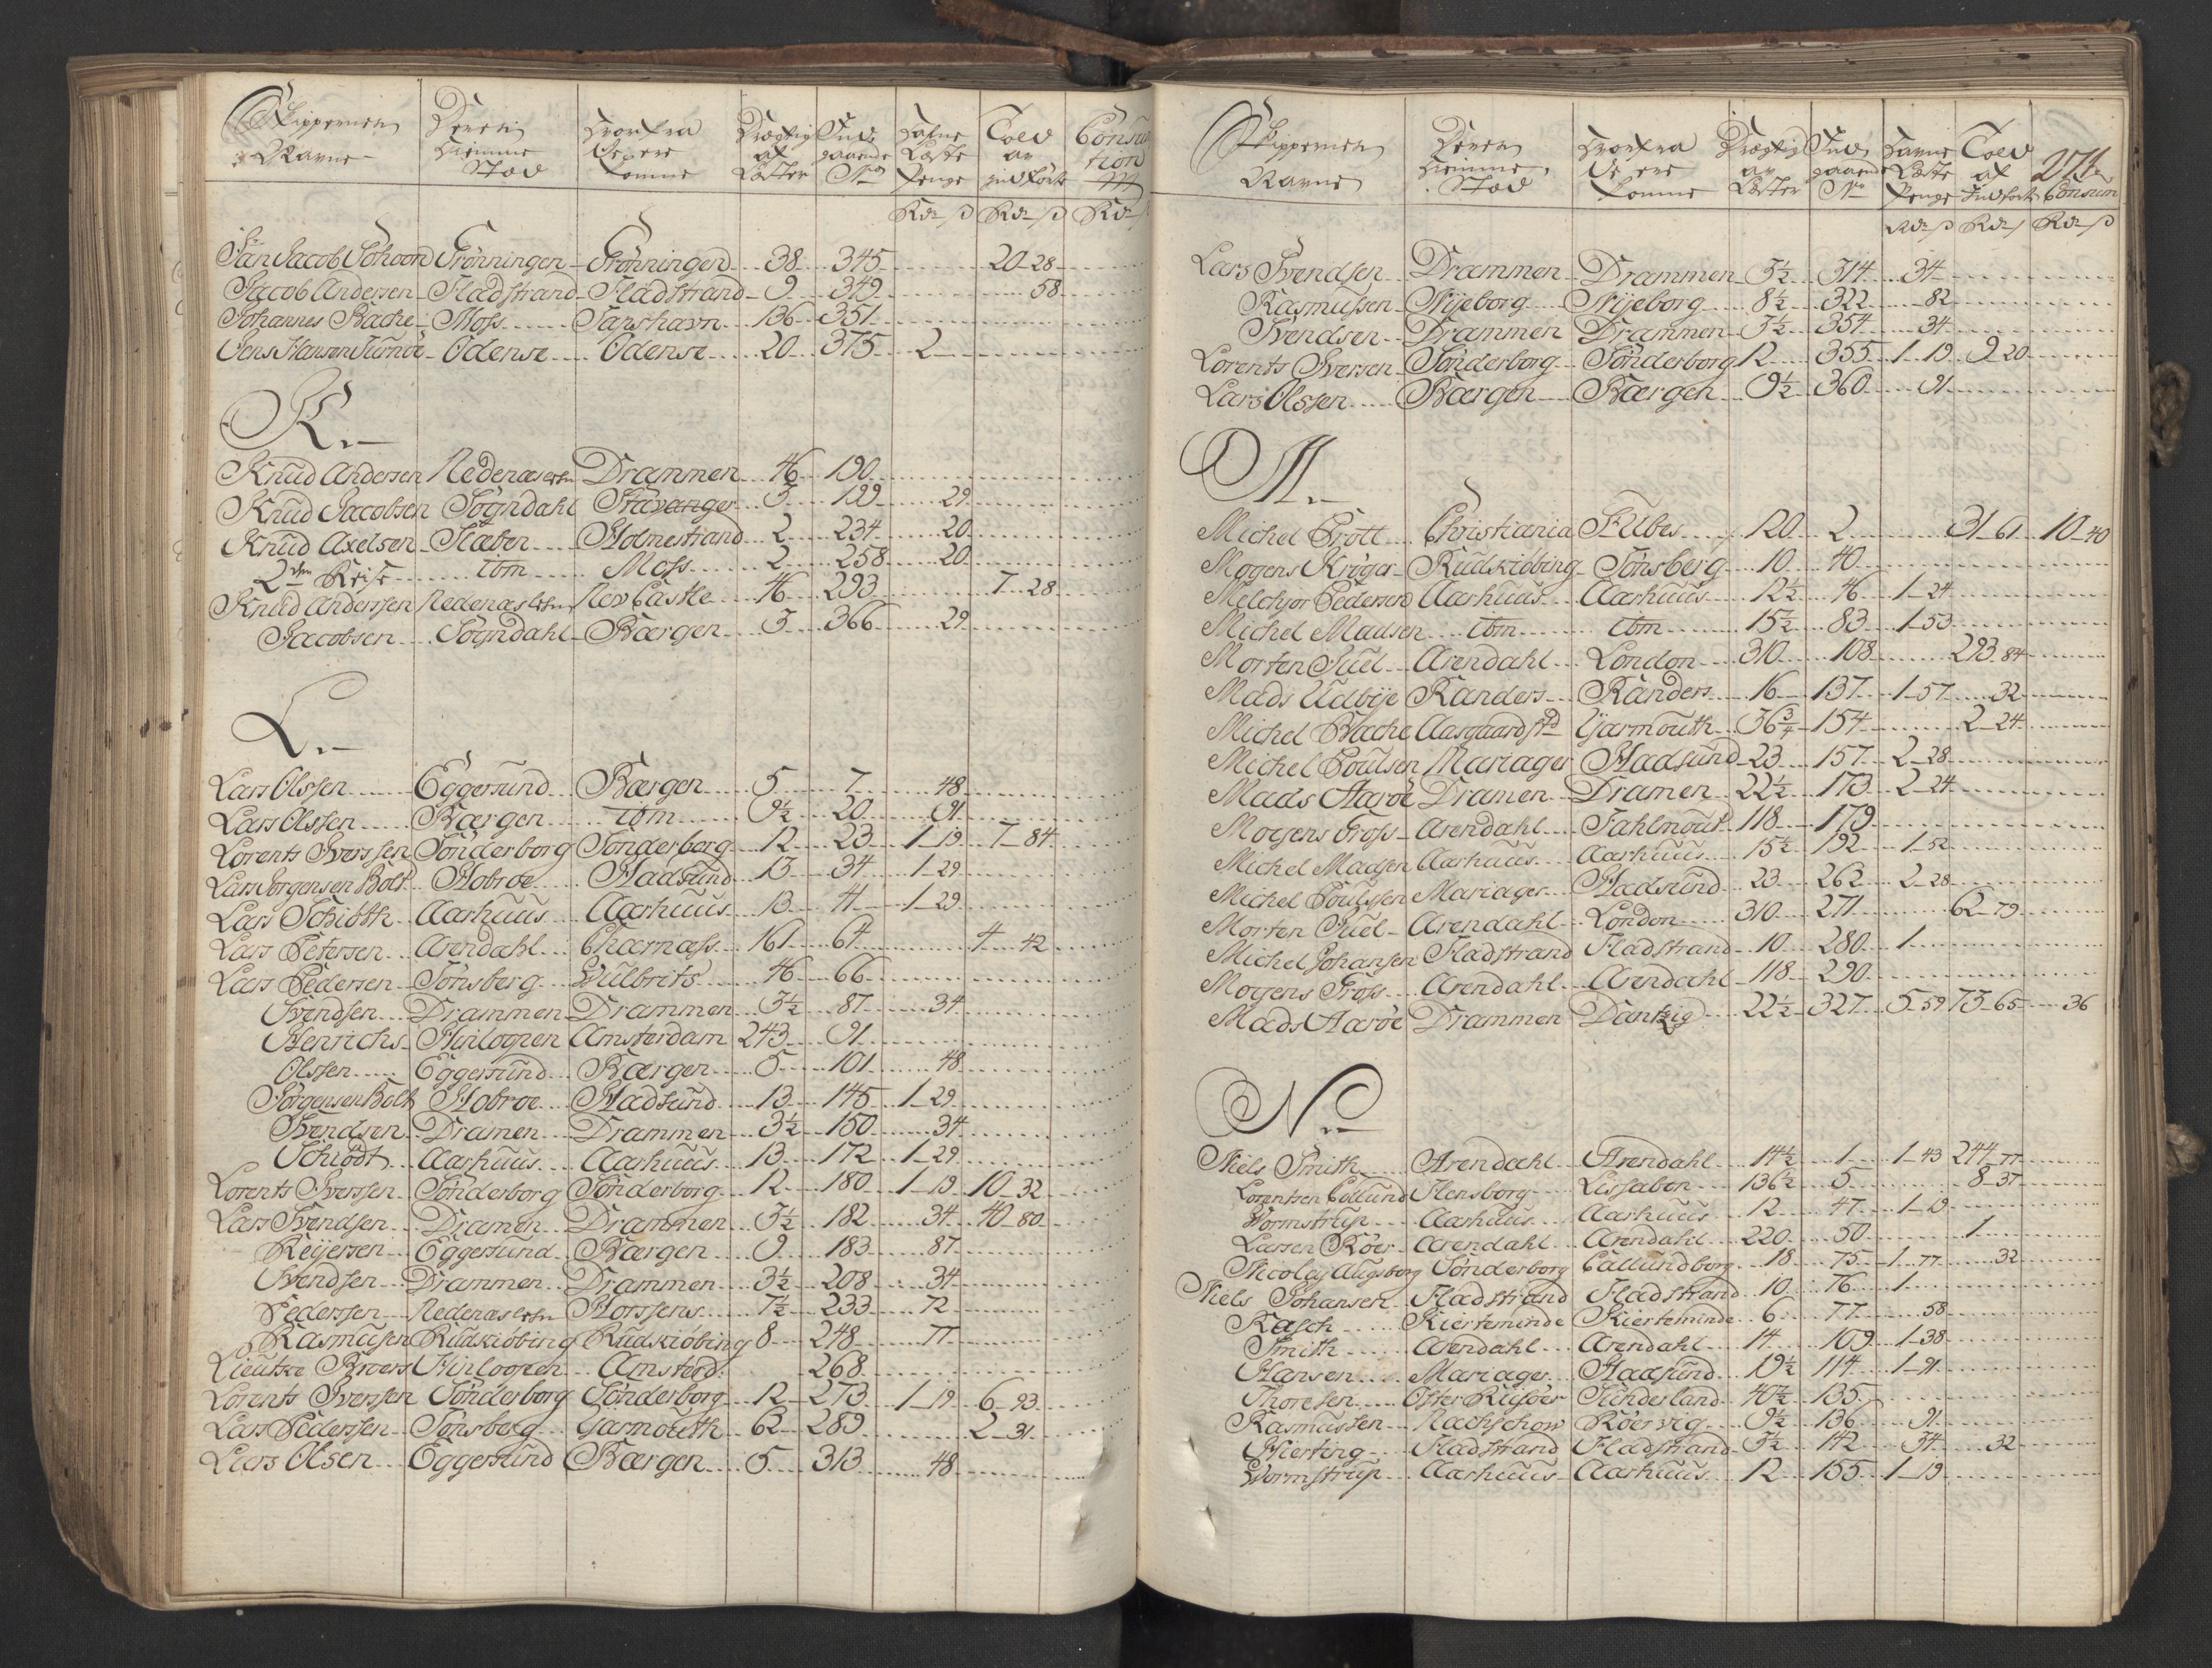 Skippernes Navne | Deres Hiemme Stæd | Hvorfra De ere komne | Drægtig af Læster | Ind gaaende No | Hafne Læste Penge | Told av indførte | Consumtion
Rdr ß | Rdr ß | Rdr ß
Jan Jacob Schoon Grönningen Grönningen 38 345 20 28
Jacob Andersen Fladstrand Fladstrand 9 349 58
Johannes Bache Moss 136 351
Jens Hansen Odense Odense 20 375 2
K.
Knud Andersen Nedenæs Drammen 46 190
Knud Jacobsen Sögndahl Stavanger 3 199 29
Knud Axelsen Holmestrand 2 234 20
2den Reise ibm Moss 2 258 20
Knud Anderssen Nedenæs New Castle 46 293 7 28
Jacobsen Sögndahl Bærgen 3 366 29
L.
Lars Olssen Eggersund Bærgen 5 7 48
Lars Olssen Bærgen ibm 9½ 20 91
Lorents Iverssen Sönderborg Sönderborg 12 23 1 19 7 84
Lars Jörgensen Bolt Hobroe Hadsund 13 34 1 29
Lars Schiöth Aarhuus Aarhuus 13 41 1 29
Lars Petersen Arendahl 161 64 4 42
Lars Pedersen Tönsberg 46 66
Svendsen Drammen Drammen 3½ 87 34
Henrichs Hinlopen Amsterdam 243 91
Olssen Eggersund Bærgen 5 101 48
Jörgensen Bolt Hobroe Hadsund 13 145 1 29
Svendsen Dramen Drammen 3½ 150 34
Schiödt Aarhuus Aarhuus 13 172 1 29
Lorents Iverssen Sönderborg Sönderborg 12 180 1 19 10 32
Lars Svendsen Dramen Drammen 3½ 182 34 40 80
Reijersen Eggersund Bærgen 9 183 87
Svendsen Drammen Drammen 3½ 208 34
Pederssen Nedenæs Horssens 7½ 233 72
Rasmusen Rudkiöbing Rudkiöbing 8 248 77
Lieutke Broers Hinlopen Amsterd: 268
Lorents Iverssen Sönderborg Sönderborg 12 273 1 19 6 93
Lars Pederssen Tönsberg Yarmouth 62 289 2 31
Lars Olsen Eggersund Bærgen 5 313 48
271
Skippernes Navne | Deres Hiemme Stæd | Hvorfra De ere komne | Drægtig av Læster | Ind gaaende No | Havne Læste Penge | Told af Indførte | Consum
Rdr ß | Rdr ß | Rdr ß
Lars Svendsen Drammen Drammen 3½ 314 34
Rasmussen Nijeborg Nijeborg 8½ 322 82
Svendsen Drammen Drammen 3½ 354 34
Lorents Iversen Sönderborg Sönderborg 12 355 1 19 9 20
Lars Olssen Bærgen Bærgen 9½ 360 91
M.
Michel Prott Christiania St Ubes 120 2 31 61 10 40
Mogens Kröger Rudkiöbing Tönsberg 10 40
Melchior Pedersen Aarhuus Aarhuus 12½ 46 1 24
Michel Madsen ibm ibm 15½ 83 1 53
Morten Juel Arendahl London 310 108 293 84
Mads Udbije Randers Randers 16 137 1 57 32
Michel Bache Aasgaardstd Yarmouth 36¾ 154 2 24
Michel Poulsen Mariager Hadsund 23 157 2 28
Mads Aaröe Dramen Dramen 22½ 173 2 24
Mogens Fross Arendahl Fahlmout 118 179
Michel Madsen Aarhuus Aarhuus 15½ 192 1 52
Michel Poulssen Mariager Hadsund 23 262 2 28
Morten Juel Arendahl London 310 271 62 79
Michel Johansen Fladstrand Fladstrand 10 280 1
Mogens Fross Arendahl Arendahl 118 290
Mads Aaröe Drammen Dantzig 22½ 327 5 59 73 65 36
N.
Niels Smith Arendahl Arendahl 14½ 1 1 43 244 77
Lorentzen Collund Flensborg Lissabon 136½ 5 8 37
Wormstrup Aarhuus Aarhuus 12 47 1 19
Larsen Röer Arendahl Arendahl 220 50 1
Nicolaj Augsborg Sönderborg Callundborg 18 75 1 77 32
Niels Johansen Fladstrand Fladstrand 10 76 1
Rasch Kierteminde Kierteminde 6 77 58
Smith Arendahl Arendahl 14 109 1 38
Hansen Mariager Hadsund 19½ 114 1 91
Thoresen Öster Riisöer Sunderland 40½ 135
Rasmussen Nachschow Röervig 9½ 136 91
Hierting Fladstrand Fladstrand 3½ 142 34 32
Wormstrup Aarhuus Aarhuus 12 155 1 19